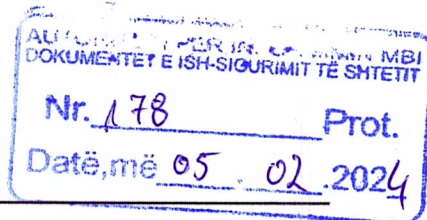 MBI
DOKUMENTET E ISH-SIGURIMIT TË SHTETIT
Nr. 178 Prot.
Datë,më 05 . 02 .2024